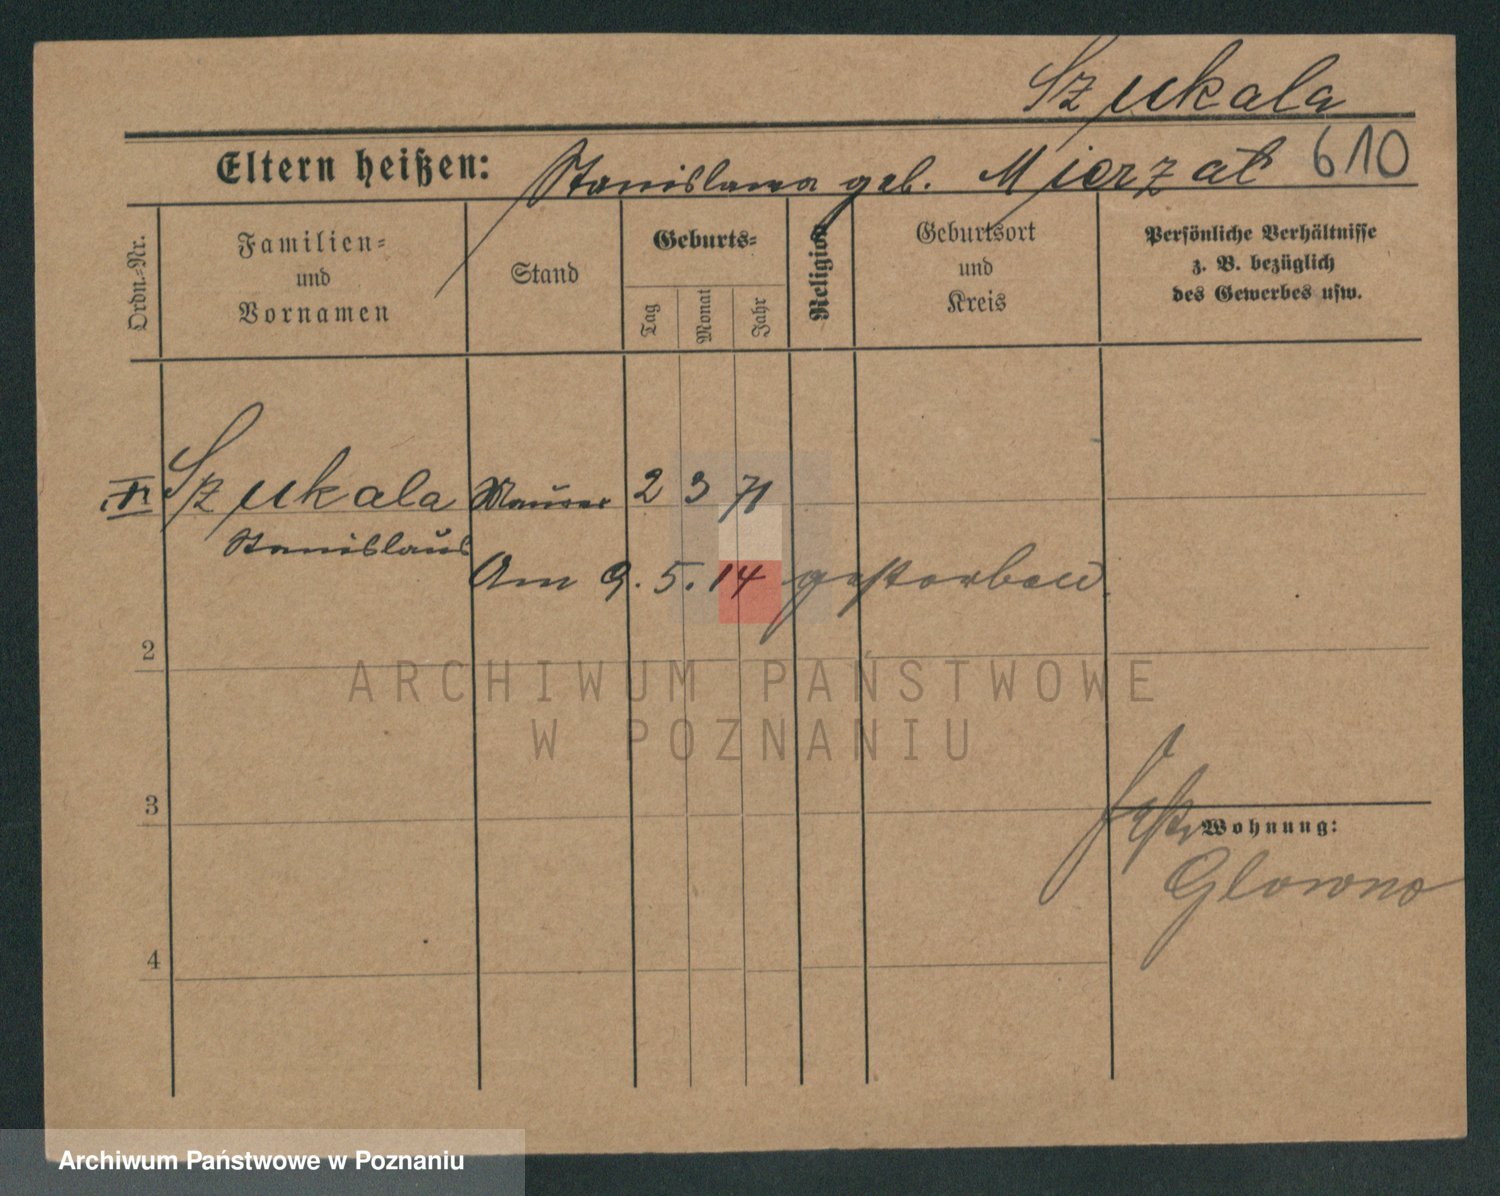 Szukala
Eltern heißen: Stanislawa geb. Mierzat 610
Ordn.-Nr.
Familien-
und
Vornamen
Stand
Geburts-
Tag
Monat
Jahr
Religion
Geburtsort
und
Kreis
Persönliche Verhältnisse
z. B. bezüglich
des Gewerbes usw.
1. Szukala Maurer 2 3 71
Stanislaus
Am 9. 5. 14 gestorben
2
ARCHIWUM PAŃSTWOWE
W POZNANIU
3
Wohnung:
Glowno
4
Archiwum Państwowe w Poznaniu